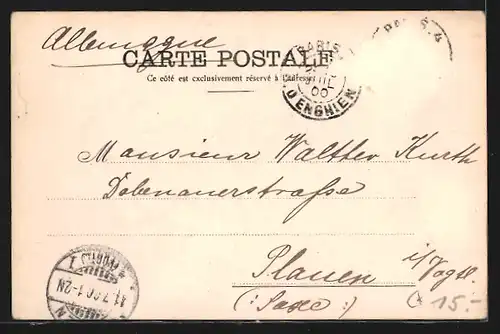 Allemagne
CARTE POSTALE
Ce côté est exclusivement réservé à l'adresse
PARIS
JUIL
00
D'ENGHIEN
Monsieur Walther Kurth
Dobenauerstraße
Plauen i/Vogtl.
(Saxe)
15.-
11.7.00.1-2N